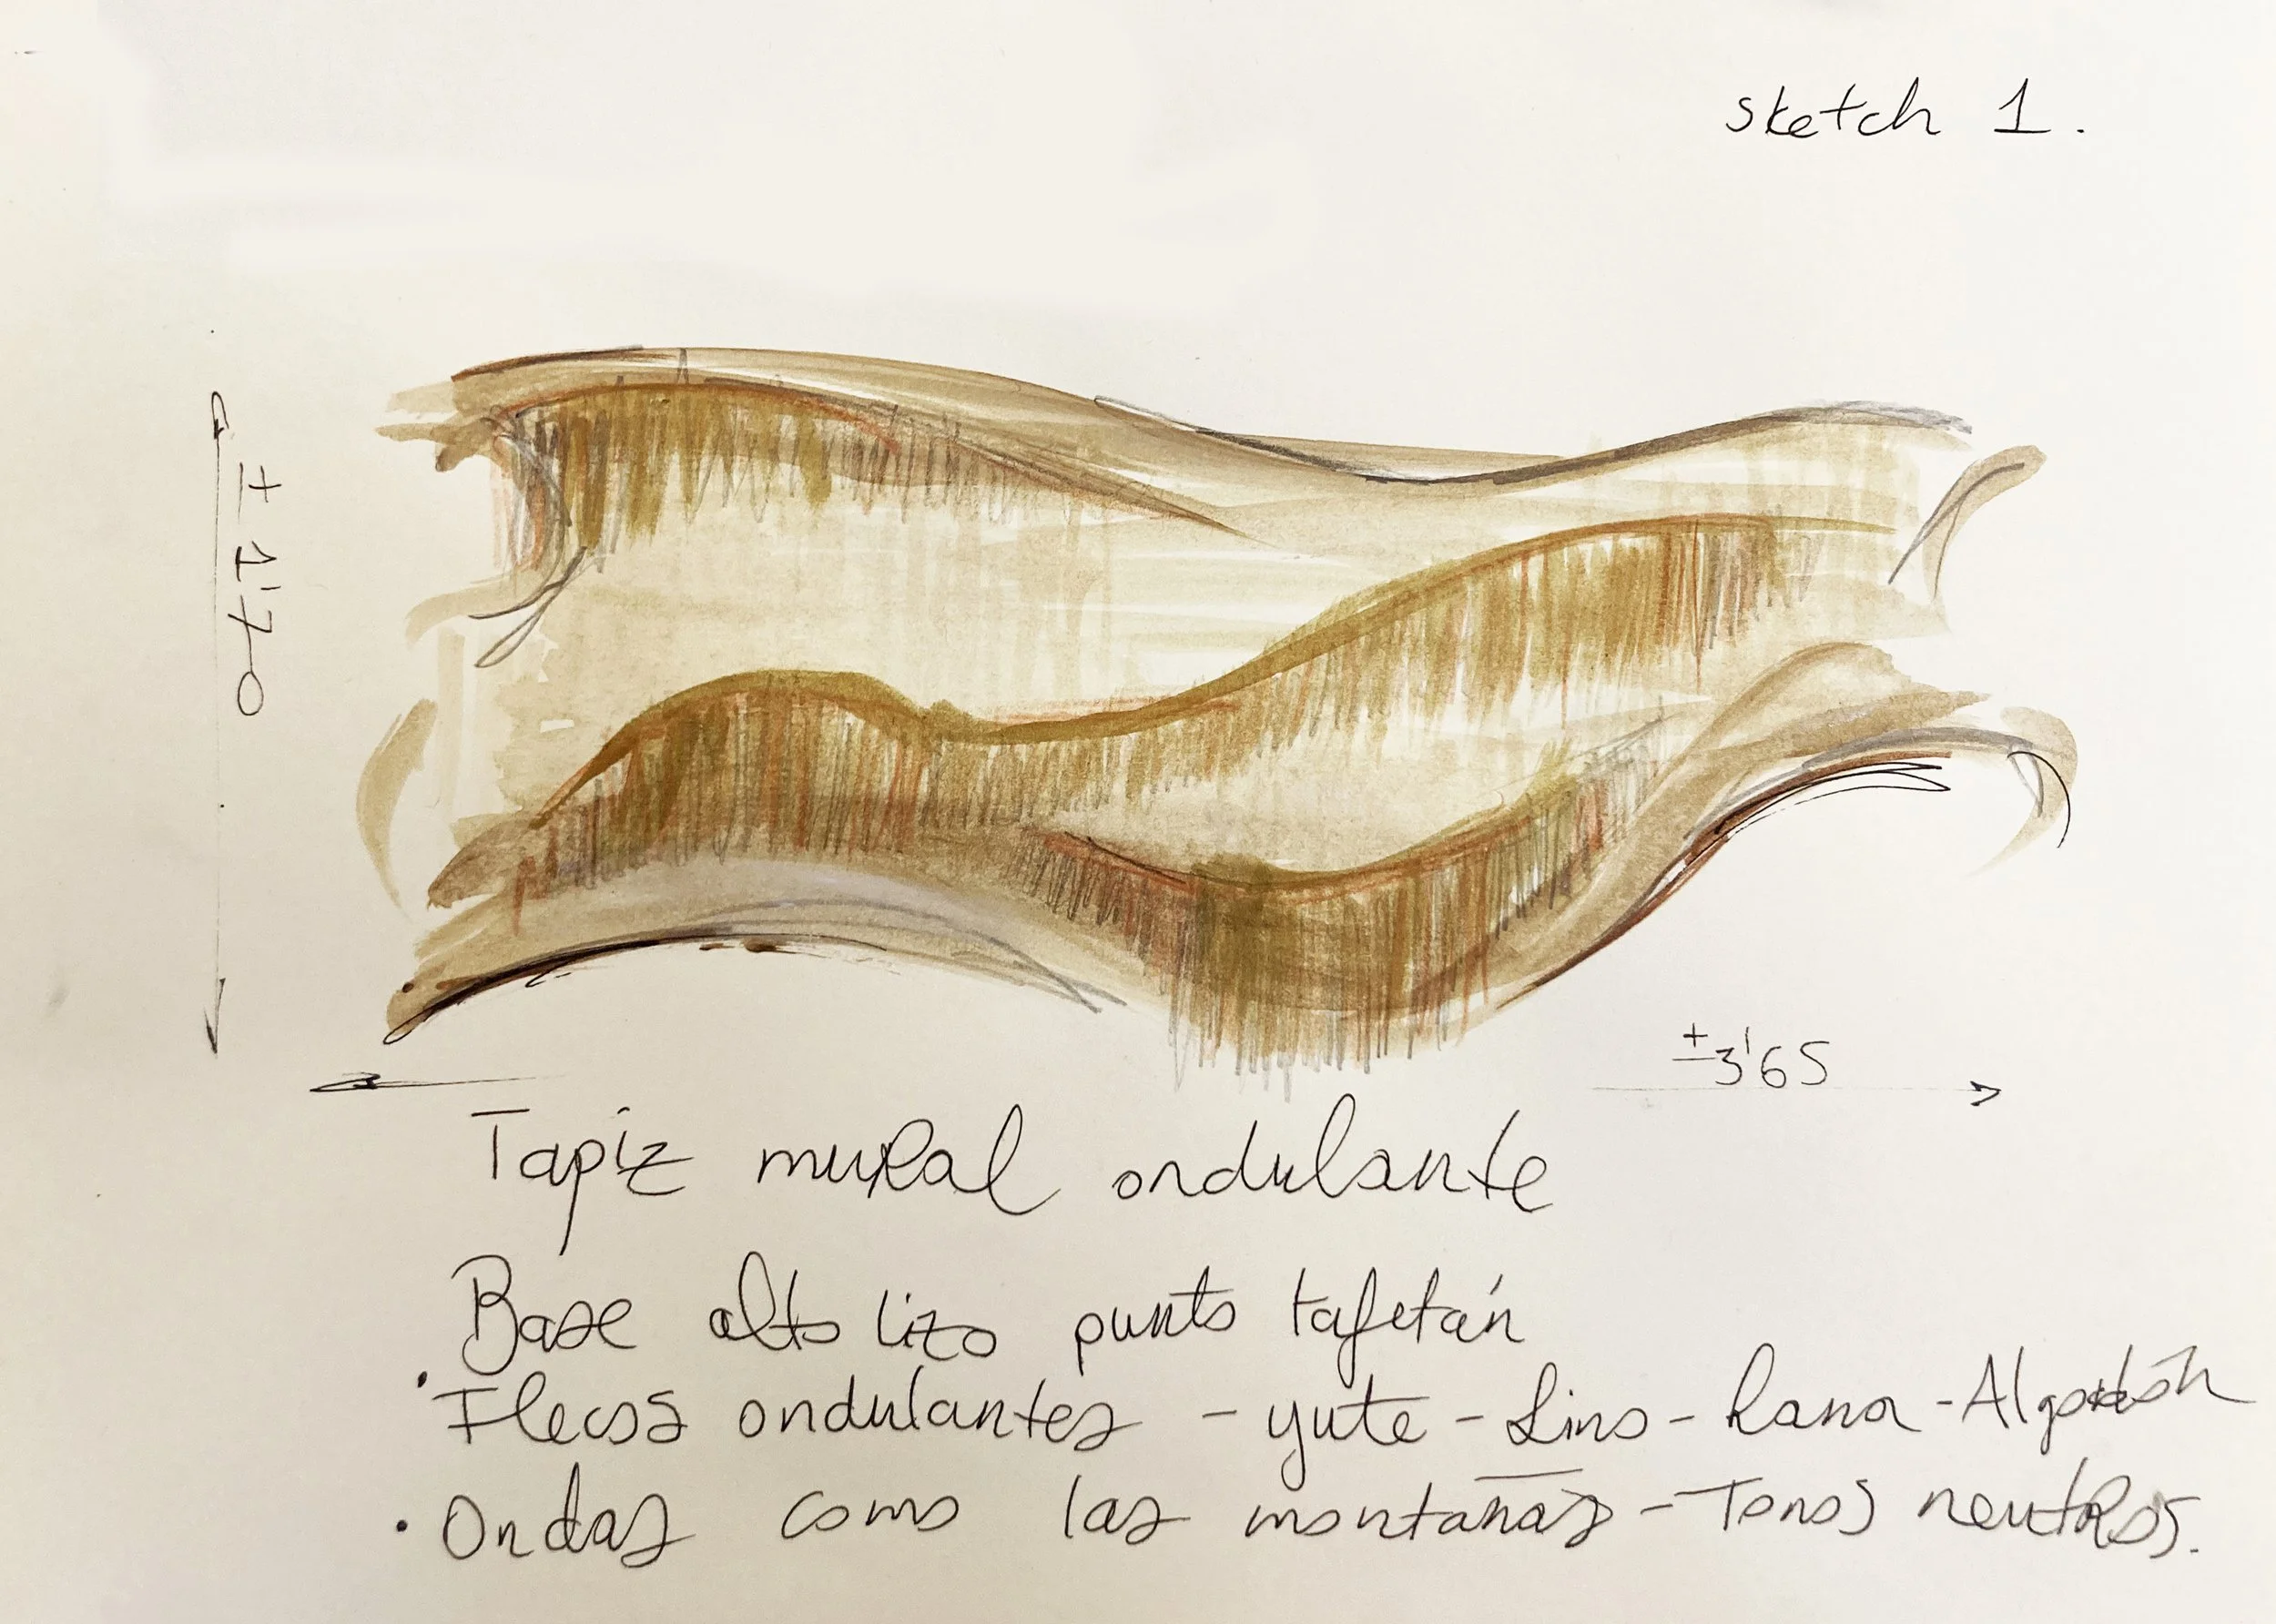 sketch 1.
± 1'70
± 3'65
Tapiz mural ondulante
Base alto lizo punto tafetán
· Flecos ondulantes - yute - Lino - Lana - Algodón
· Ondas como las montañas - Tonos neutros.